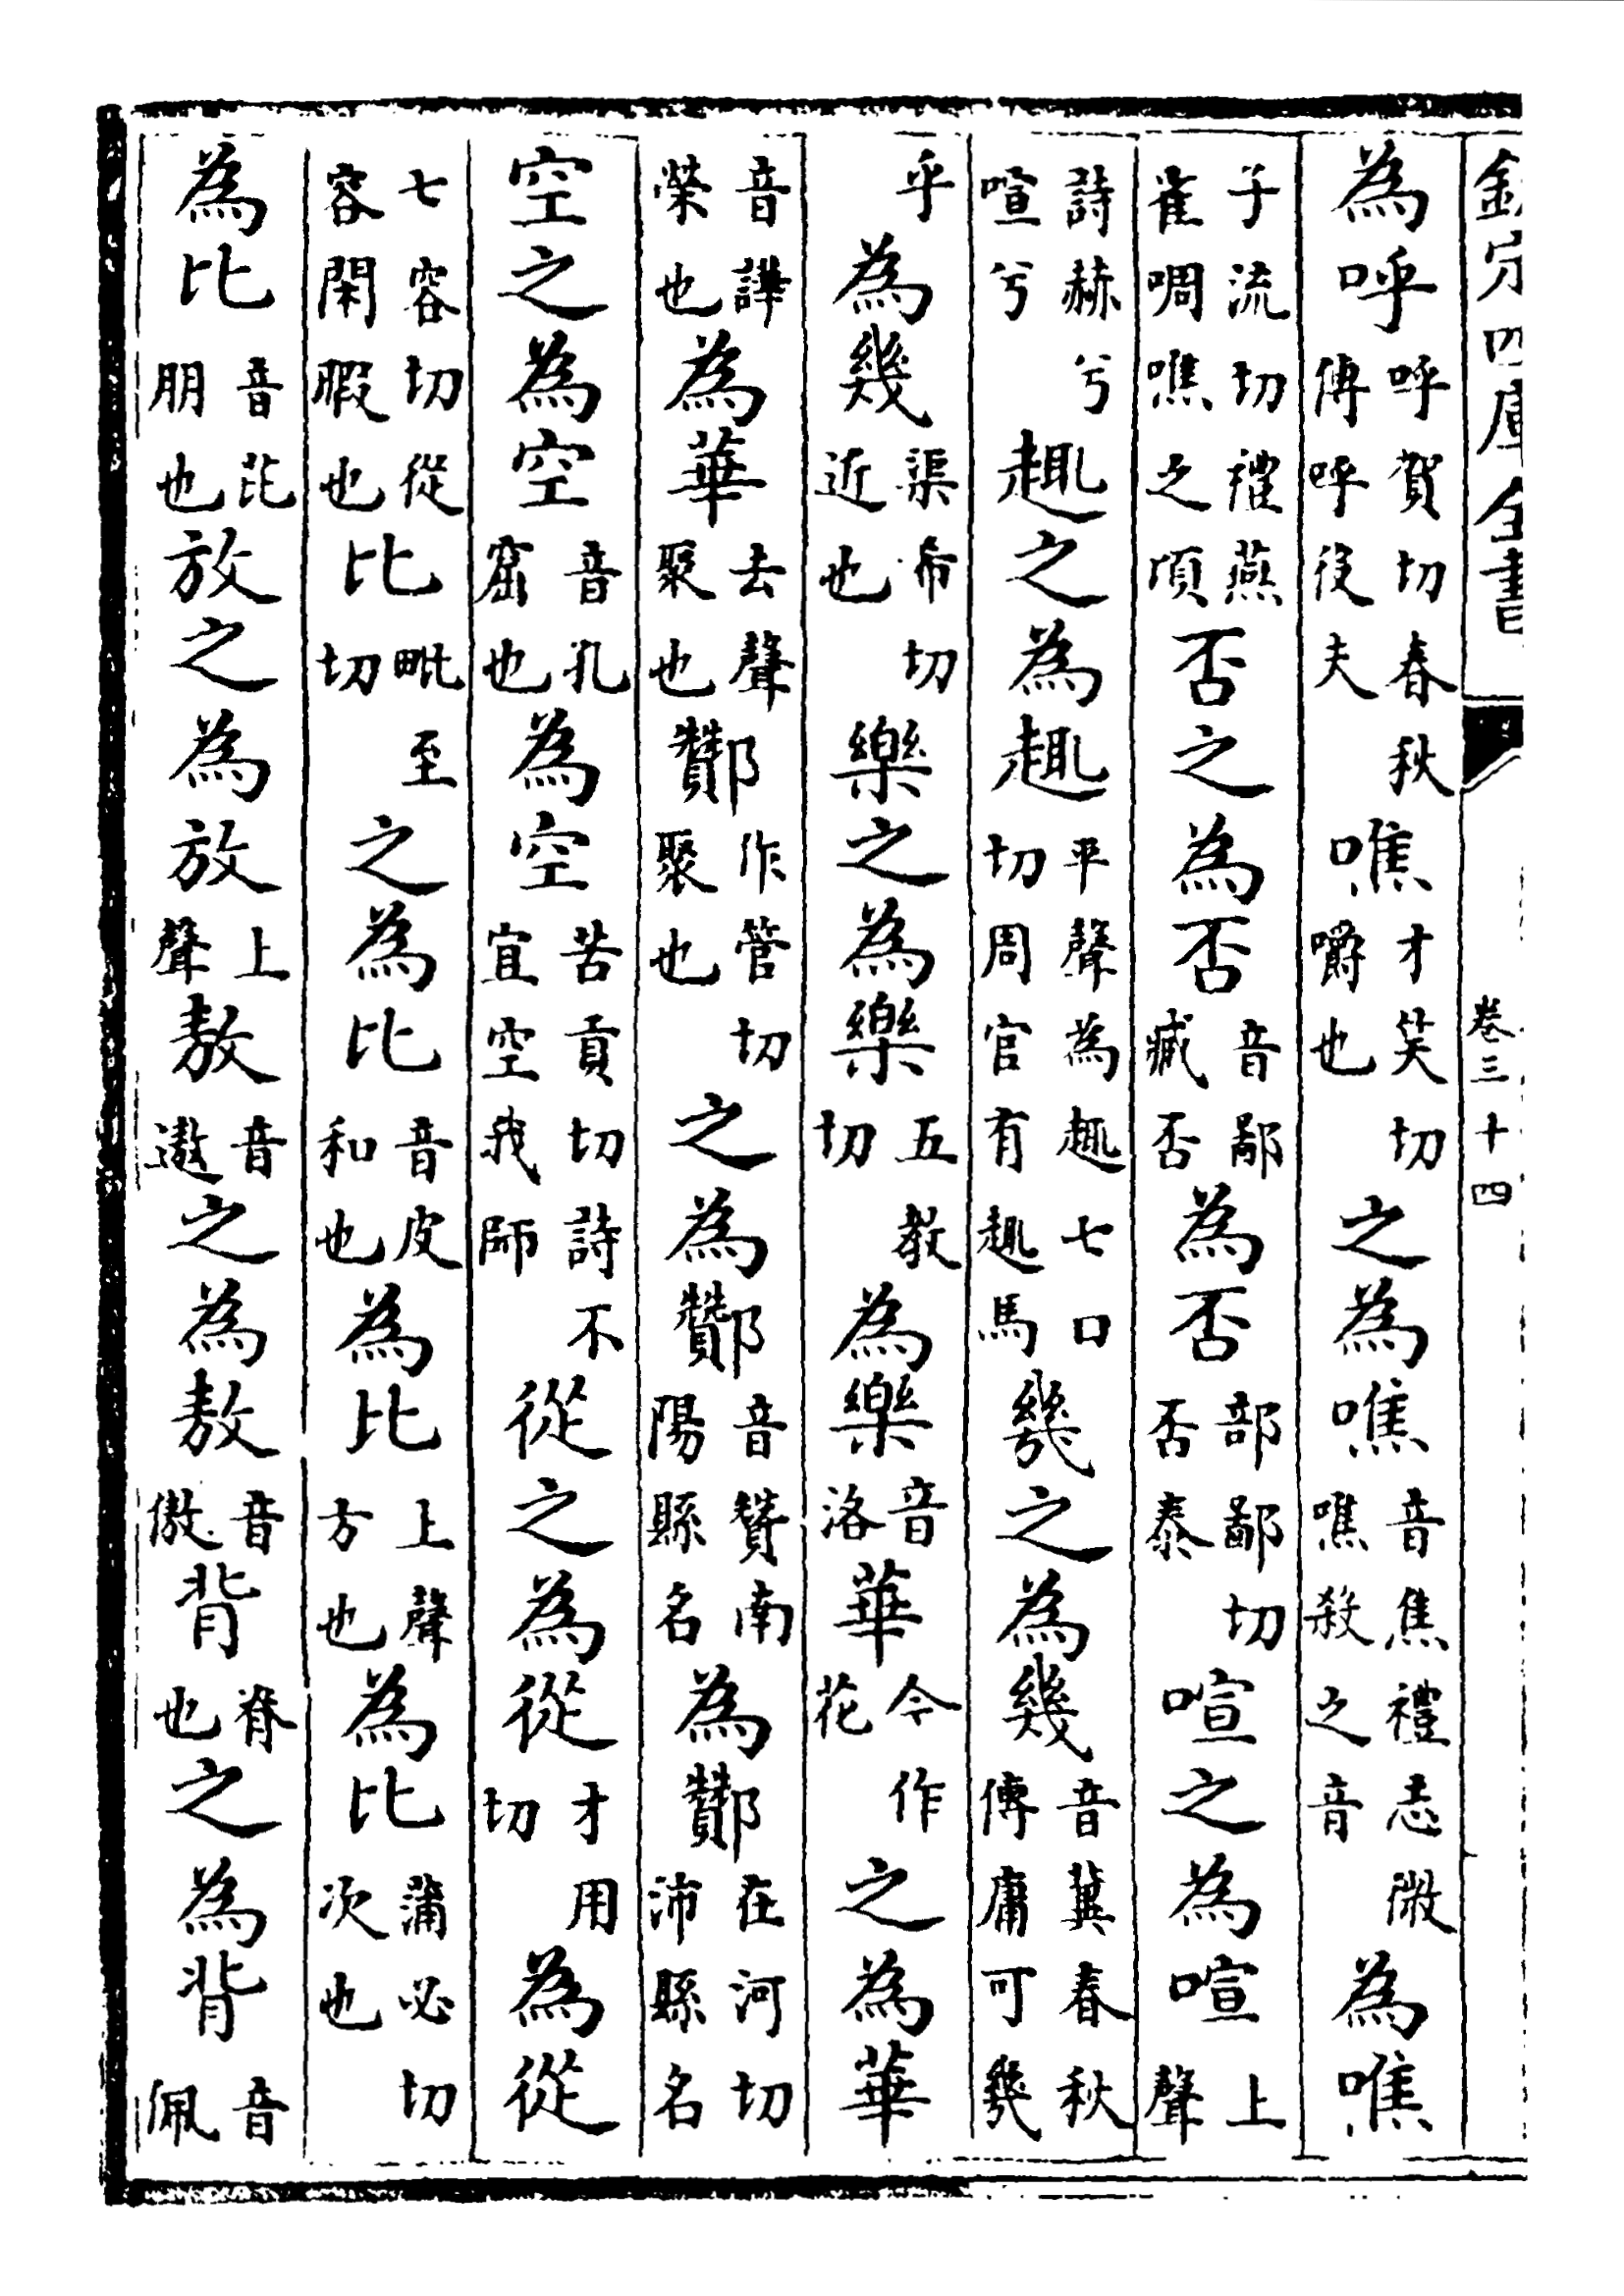 欽定四庫全書 卷三十四
為呼呼賀切春秋傳呼役夫噍才笑切嚼也之為噍音焦禮志微噍殺之音為噍
子流切禮燕雀啁噍之頃否之為否音鄙臧否為否部鄙切否泰喧之為喧上聲
詩赫兮喧兮趣之為趣平聲為趣七口切周官有趣馬幾之為幾音冀春秋傳庸可幾
乎為幾渠希切近也樂之為樂五教切為樂音洛華今作花之為華
音譁榮也為華去聲聚也酇作管切聚也之為酇音贊南陽縣名為酇在河切沛縣名
空之為空音孔窟也為空苦貢切詩不宜空我師從之為從才用切為從
七容切從容閑暇也比毗至切之為比音皮和也為比上聲方也為比蒲必切次也
為比音毗朋也放之為放上聲敖音遨之為敖音傲背脊也之為背音佩